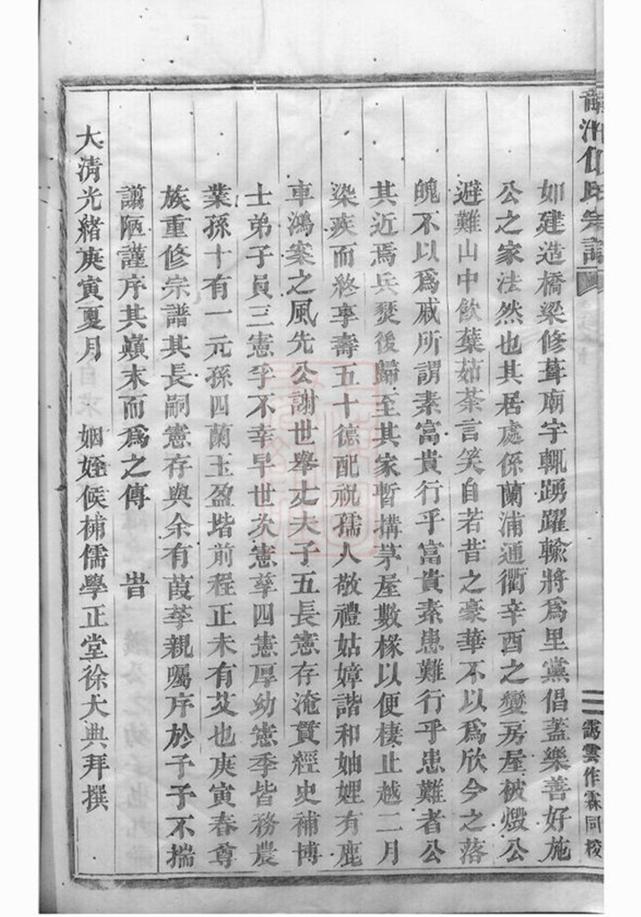 氏宗譜
霱雲作霖同校
如建造橋梁修葺廟宇輒踴躍輸將爲里黨倡蓋樂善好施
公之家法然也其居處係蘭浦通衢辛酉之變房屋被燬公
避難山中飲蘗茹茶言笑自若昔之豪華不以爲欣今之落
魄不以爲戚所謂素富貴行乎富貴素患難行乎患難者公
其近焉兵燹後歸至其家暫搆茅屋數椽以便棲止越二月
染疾而終享壽五十德配祝孺人敬禮姑嫜諧和妯娌有鹿
車鴻案之風先公謝世舉丈夫子五長憲存淹貫經史補博
士弟子員三憲孚不幸早世次憲孳四憲厚幼憲季皆務農
業孫十有一元孫四蘭玉盈堦前程正未有艾也庚寅春尊
族重修宗譜其長嗣憲存與余有葭莩親屬序於予予不揣
謭陋謹序其巔末而爲之傳 旹
大清光緒庚寅夏月 姻姪候補儒學正堂徐大典拜撰